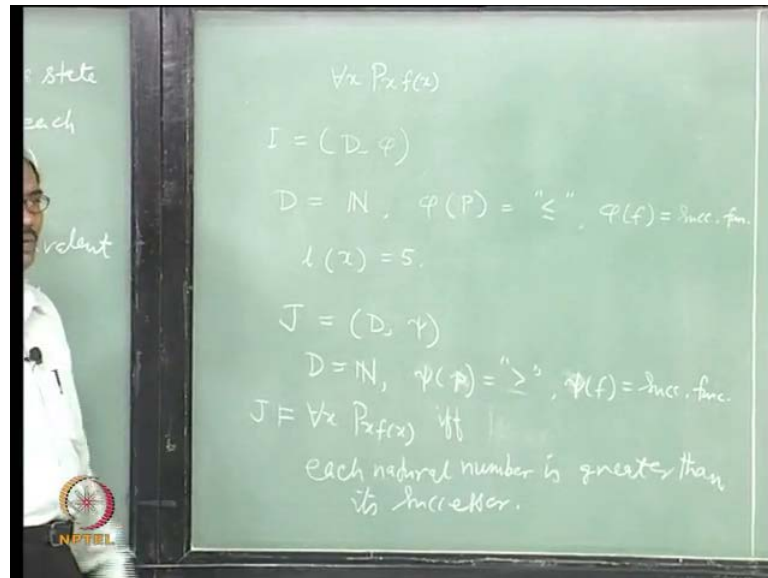 s state
each
valent
∀x Pxf(x)
I = (D, φ)
D = ℕ, φ(P) = "≤", φ(f) = Succ. fun.
l(x) = 5.
J = (D, ψ)
D = ℕ, ψ(P) = ">", ψ(f) = Succ. func.
J ⊨ ∀x Pxf(x) iff
each natural number is greater than
its successor.
NPTEL